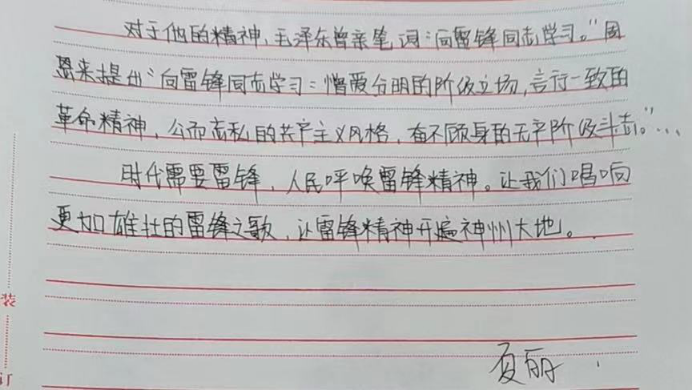 对于他的精神,毛泽东曾亲笔词“向雷锋同志学习。”周
恩来提出“向雷锋同志学习:憎爱分明的阶级立场,言行一致的
革命精神,公而忘私的共产主义风格,奋不顾身的无产阶级斗志。”…
时代需要雷锋,人民呼唤雷锋精神。让我们唱响
更加雄壮的雷锋之歌,让雷锋精神开遍神州大地。
装
夏丽
订